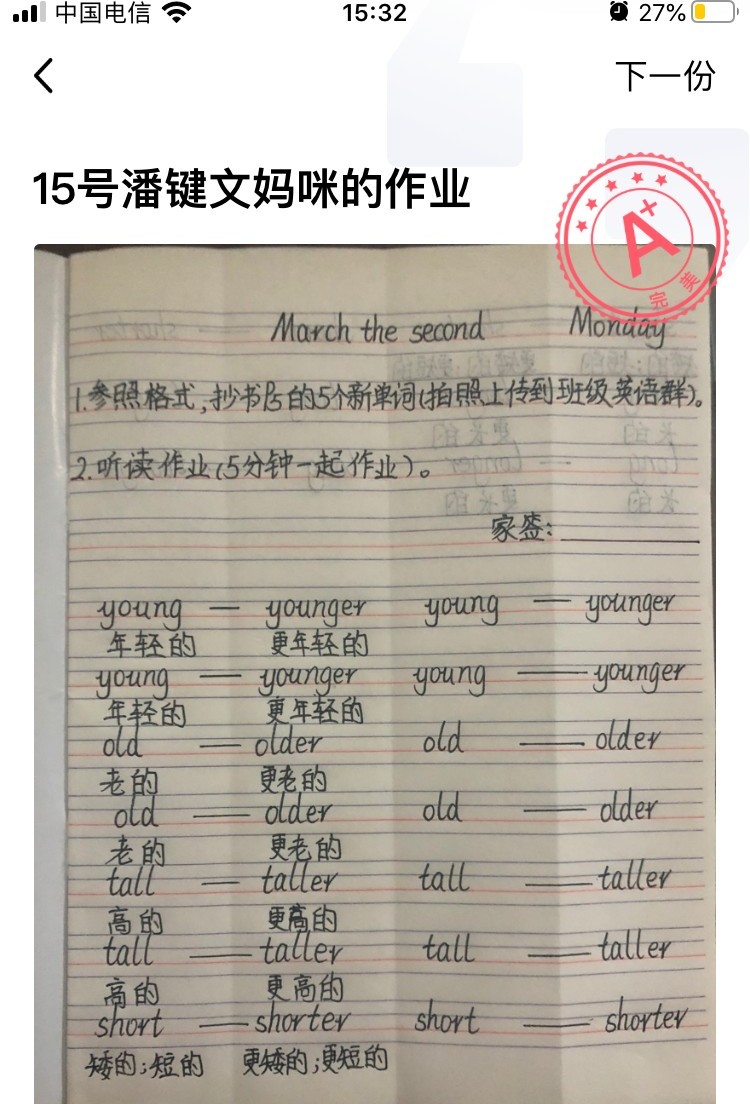 中国电信 15:32 27%
下一份
15号潘键文妈咪的作业
A+
完美
March the second Monday
1.参照格式,抄书P5的5个新单词(拍照上传到班级英语群)。
2.听读作业(5分钟一起作业)。
家签:
young — younger young — younger
年轻的 更年轻的
young — younger young — younger
年轻的 更年轻的
old — older old — older
老的 更老的
old — older old — older
老的 更老的
tall — taller tall — taller
高的 更高的
tall — taller tall — taller
高的 更高的
short — shorter short — shorter
矮的;短的 更矮的;更短的